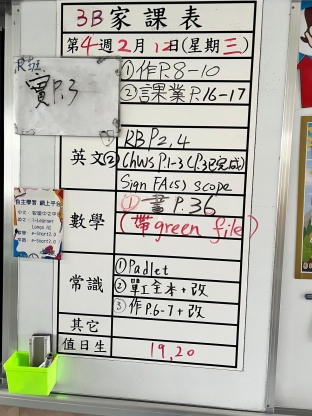 3B家課表
第4週2月12日(星期三)
P.班
實P.3
①作P.8-10
②詞課業P.16-17
英文②
RBP2,4
Chws P.1-3 (P.3已完成)
Sign FA(s) scope
數學
①書P.36
(帶green file)
常識
①Padlet
②單1全本+改
③作P.6-7+改
其它
值日生
19,20
自主學習 網上平台